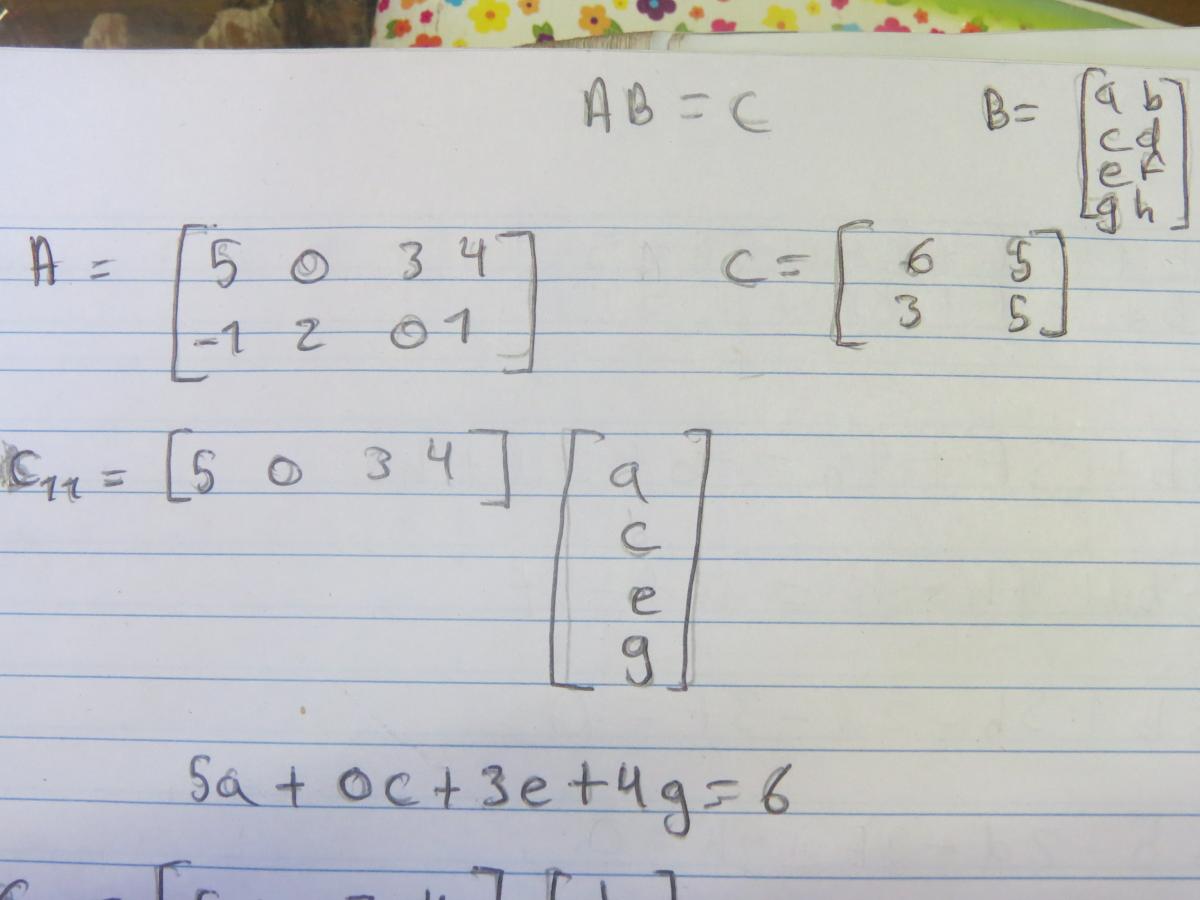 AB = C B = [a b
c d
e f
g h]
A = [5 0 3 4
-1 2 0 1] C = [6 5
3 5]
C₁₁ = [5 0 3 4] [a
c
e
g]
5a + 0c + 3e + 4g = 6